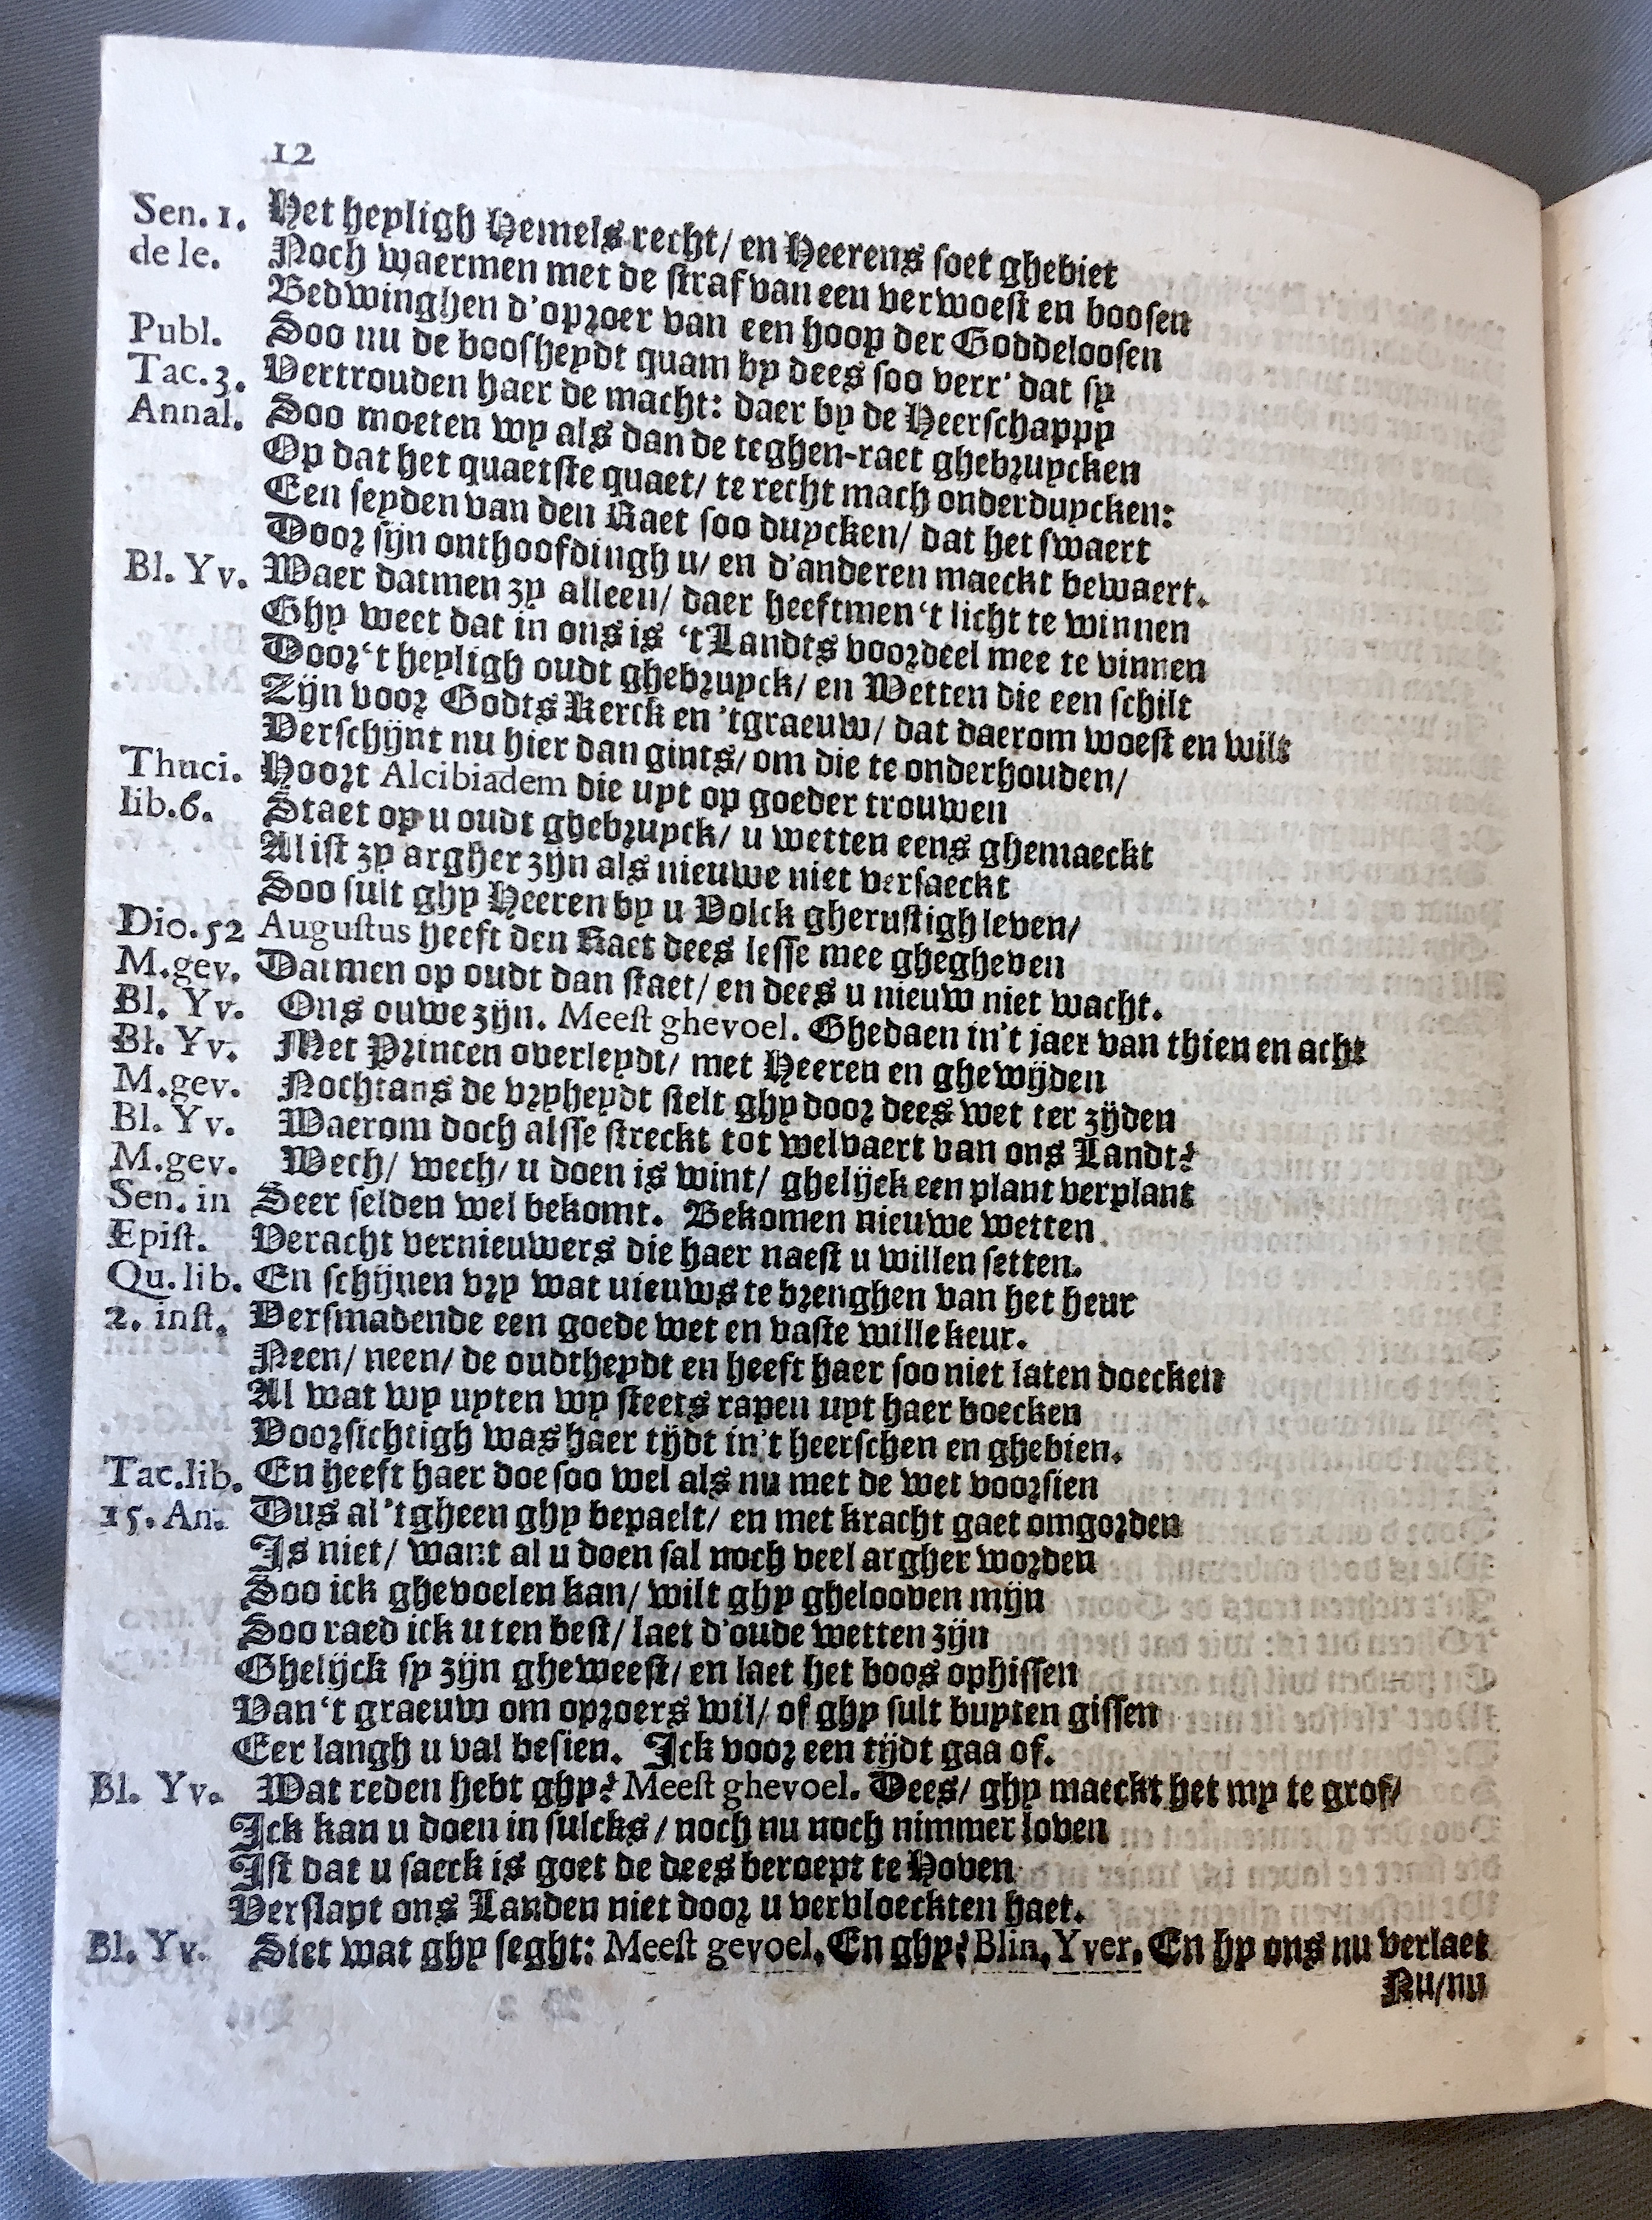 12
Sen. 1. Het heyligh Hemels recht/ en Heerens soet ghebiet
de le. Noch waermen met de straf van een verwoest en boosen
Bedwinghen d'oproer van een hoop der Goddeloosen
Publ. Soo nu de boosheydt quam by dees soo verr' dat sy
Tac.3. Vertrouden haer de macht: daer by de Heerschappy
Annal. Soo moeten wy als dan de teghen-raet ghebruycken
Op dat het quaetste quaet/ te recht mach onderduycken:
Een seyden van den Raet soo duycken/ dat het swaert
Door sijn onthoofdingh u/ en d'anderen maeckt bewaert.
Bl. Yv. Waer datmen zy alleen/ daer heeftmen 't licht te winnen
Ghy weet dat in ons is 't Landts voordeel mee te vinnen
Door 't heyligh oudt ghebruyck/ en Wetten die een schilt
Zijn voor Godts Kerck en 'tgraeuw/ dat daerom woest en wilt
Verschijnt nu hier dan gints/ om die te onderhouden/
Thuci. Hoort Alcibiadem die uyt op goeder trouwen
lib.6. Staet op u oudt ghebruyck/ u wetten eens ghemaeckt
Al ist zy argher zijn als nieuwe niet versaeckt
Soo sult ghy Heeren by u Volck gherustigh leven/
Dio.52 Augustus heeft den Raet dees lesse mee ghegheven
M.gev. Datmen op oudt dan staet/ en dees u nieuw niet wacht.
Bl. Yv. Ons ouwe zijn. Meest ghevoel. Ghedaen in't jaer van thien en acht
Bl. Yv. Met Princen overleydt/ met Heeren en ghewijden
M.gev. Nochtans de vryheydt stelt ghy door dees wet ter zijden
Bl. Yv. Waerom doch alsse streckt tot welvaert van ons Landt?
M.gev. Wech/ wech/ u doen is wint/ ghelijck een plant verplant
Sen. in Seer selden wel bekomt. Bekomen nieuwe wetten
Æpist. Veracht vernieuwers die haer naest u willen setten.
Qu. lib. En schijnen vry wat nieuws te brenghen van het heur
2. inst. Versmadende een goede wet en vaste wille keur.
Neen/ neen/ de oudtheydt en heeft haer soo niet laten doecken
Al wat wy uyten wy steets rapen uyt haer boecken
Voorsichtigh was haer tijdt in't heerschen en ghebien.
Tac.lib. En heeft haer doe soo wel als nu met de wet voorsien
15. An. Dus al 'tgheen ghy bepaelt/ en met kracht gaet omgorden
Is niet/ want al u doen sal noch veel argher worden
Soo ick ghevoelen kan/ wilt ghy ghelooven mijn
Soo raed ick u ten best/ laet d'oude wetten zijn
Ghelijck sy zijn gheweest/ en laet het boos ophissen
Van 't graeuw om oproers wil/ of ghy sult buyten gissen
Eer langh u val besien. Ick voor een tijdt gaa of.
Bl. Yv. Wat reden hebt ghy? Meest ghevoel. Dees/ ghy maeckt het my te grof/
Ick kan u doen in sulcks/ noch nu noch nimmer loven
Ist dat u saeck is goet de dees beroept te Hoven
Verslapt ons Landen niet door u vervloeckten haet.
Bl. Yv. Siet wat ghy seght: Meest gevoel. En ghy? Blin. Yver. En hy ons nu verlaet
Nu/nu